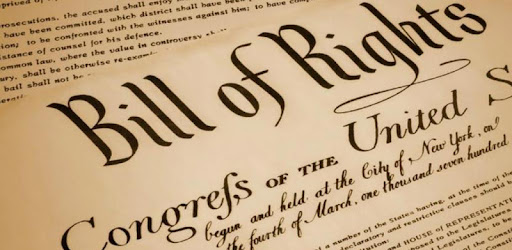 prosecutions, the accused shall enjoy
have been committed, which district shall have been
tion; to be confronted with the witnesses against him; to have comp
sistance of counsel for his defence.
common law, where the value in controversy shall
ury, shall be otherwise re-exam
bail shall not be
Bill of Rights
Congreſs OF THE United S
begun and held at the City of New York, on
the fourth of March, one thousand seven hundred
number of the States having, at the time of the
declaratory and restrictive clauses should be
HOUSE of REPRESENTATI
to the Legislatures